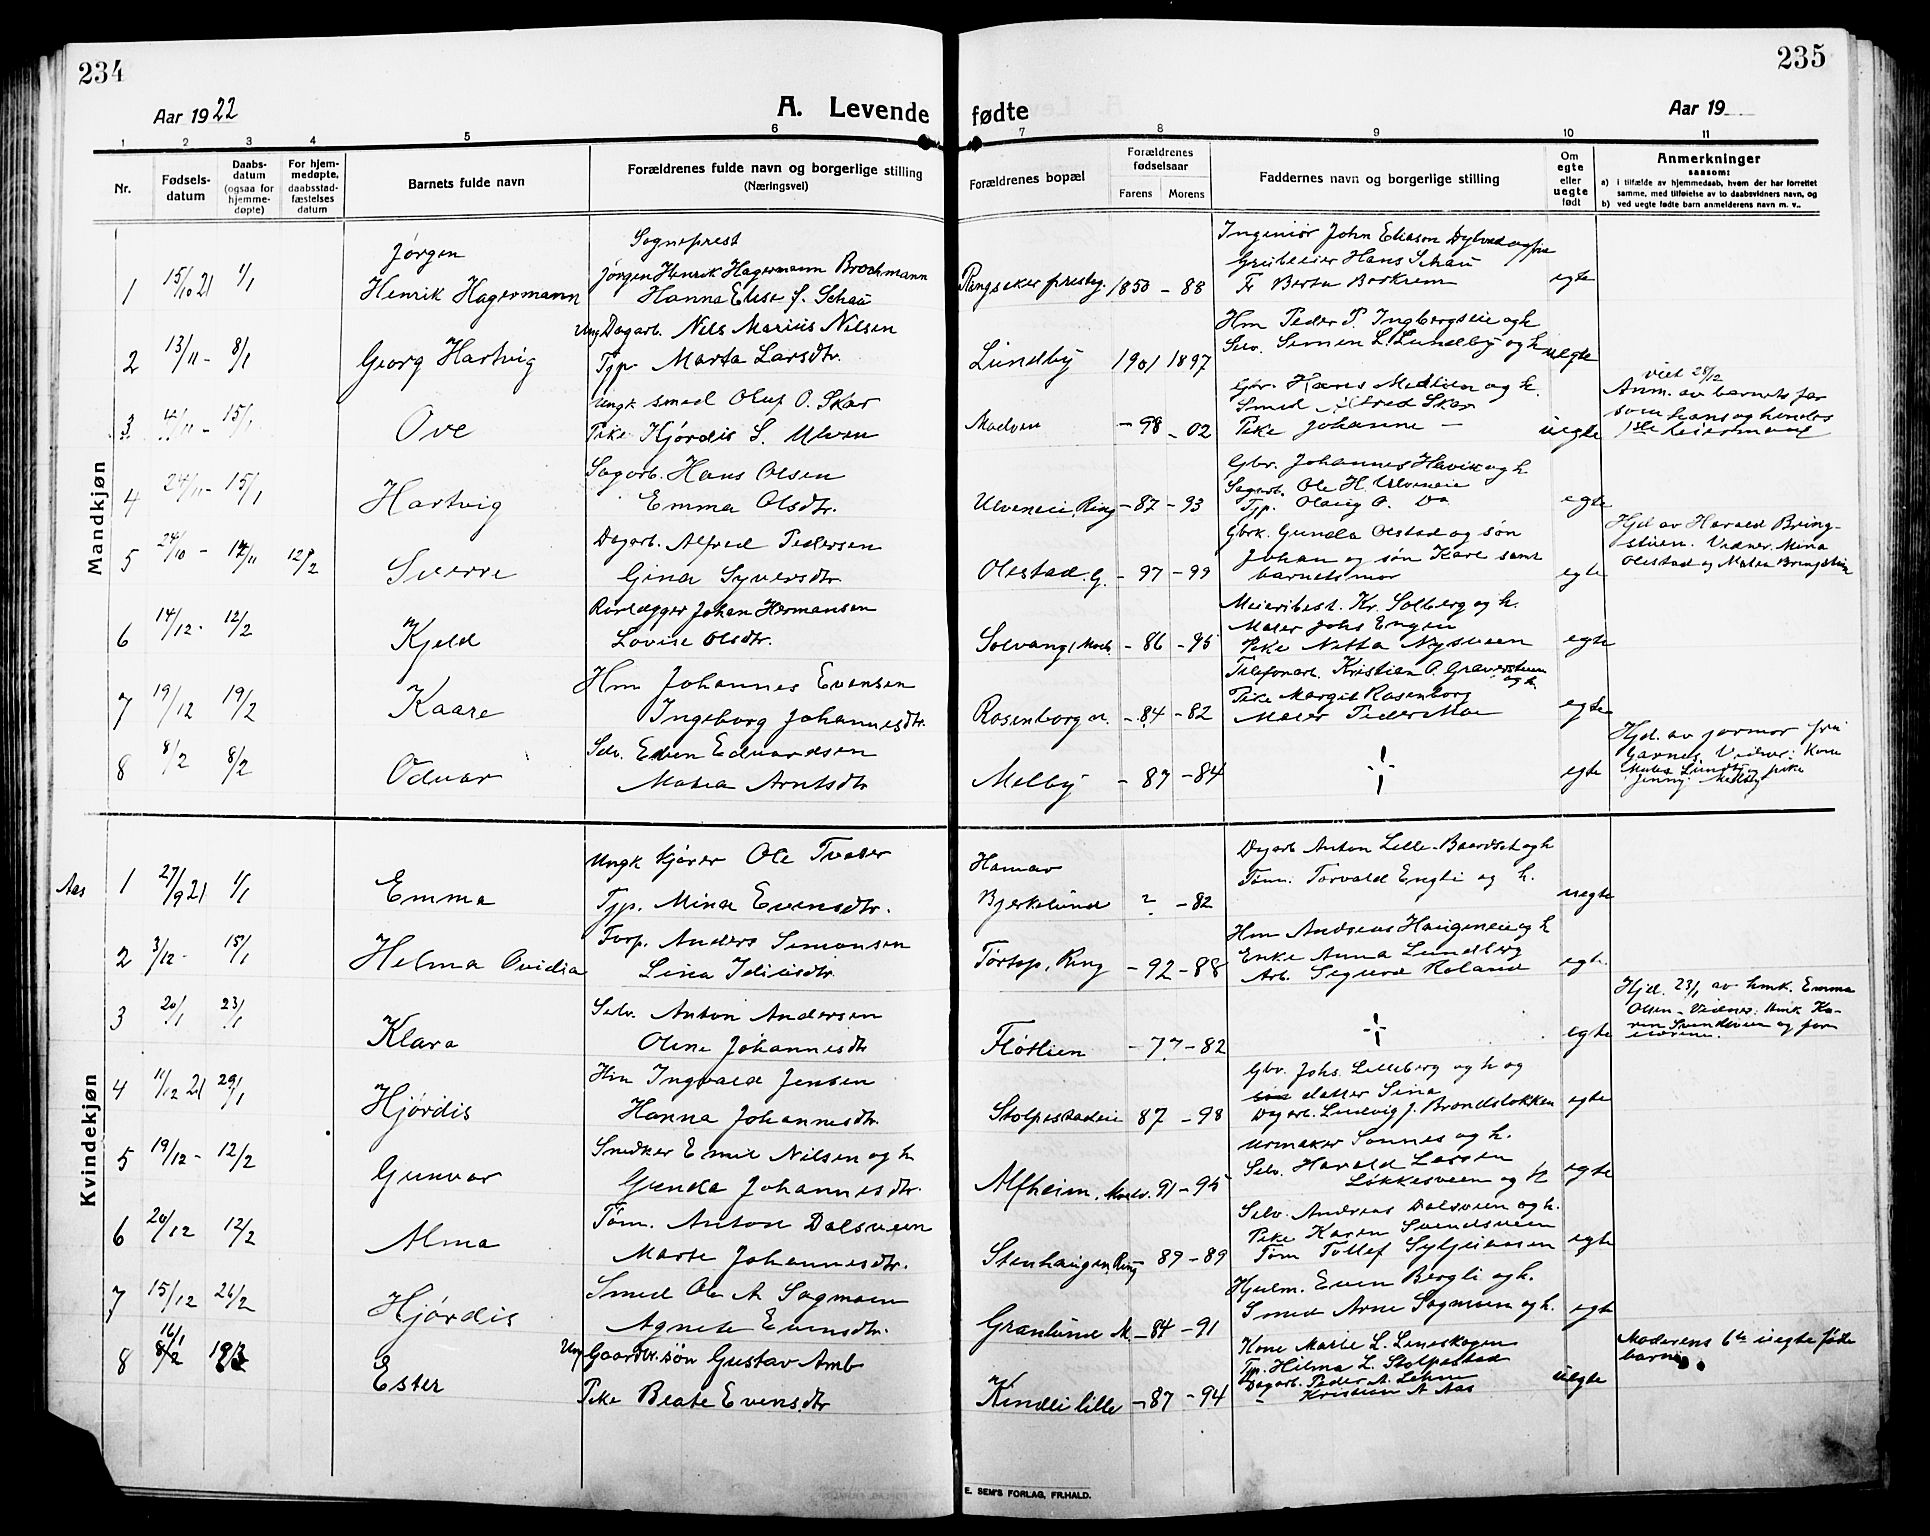 234
235
Aar 1922
A. Levende fødte
Aar 19
1 2 3 4 5 6 7 8 9 10 11
Nr.
Fødsels-
datum
Daabs-
datum
(ogsaa for
hjemme-
døpte)
For hjem-
medøpte,
daabsstad-
fæstelses
datum
Barnets fulde navn
Forældrenes fulde navn og borgerlige stilling
(Næringsvei)
Forældrenes bopæl
Forældrenes
fødselsaar
Farens Morens
Faddernes navn og borgerlige stilling
Om
egte
eller
uegte
født
Anmerkninger
saasom:
a) i tilfælde av hjemmedaab, hvem der har forrettet
samme, med tilføielse av to daabsvidners navn, og
b) ved uegte fødte barn anmelderens navn m. v..
Mandkjøn
1 15/10 21 1/1
Jørgen
Henrik Hagermann
Sogneprest
Jørgen Henrik Hagermann Brochmann
Hanna Elise f. Schau
Ringsaker prestg. 1850 - 88
Ingeniør John Eliason
Grubeeier Hans Schau
Fr Berta
egte
2 13/11 - 8/1
Georg Hartvig
Ung Dagarb. Nels Marius Nilsen
Tjp. Marta Larsdtr.
Lundby 1901 1897
Hm Peder P. Ingbergseie og h
Selv. Simen L. Lundby og h
uegte
3 4/11 - 15/1
Ove
Ungk smed Oluf O. Skar
Pike Hjördis S. Ulven
Moelven - 98 - 02
Gbr. Hans Mælien og h.
Smed Alfred Skar
Pike Johanne -
uegte
viet 28/12
Anm. av barnets far
som hans og hendes
1ste leiermaal
4 24/11 - 15/1
Hartvig
Sagarb. Hans Olsen
Emma Olsdtr.
Ulveneie, Ring - 87 - 93
Gbr. Johannes Havik og h.
Sagarb. Ole H. Ulveneie
Tjp. Olaug O. Do
egte
5 24/10 - 12/11 12/2
Sverre
Dagarb. Alfred Pedersen
Gina Syversdtr.
Olestad. G. - 97 - 99
Gbrk. Gunda Olstad og søn
Johan og søn Kare samt
barnets mor
egte
Hjd av Harald Bring-
stuen. Vidner: Mina
Olestad og Matea Bringstuen
6 14/12 - 12/2
Kjeld
Rørlægger Johan Hermansen
Lovise Olsdtr.
Solvang, Moelv. - 86 - 95
Meieribest. Kr. Solberg og h.
Maler Johs Engen
Pike Netta Nysveen
egte
7 19/12 19/2
Kaare
Hm Johannes Evensen
Ingeborg Johannesdtr.
Rosenborg M. - 84 - 82
Telefonarb. Kristian O. Graverstuen
og h.
Pike Margit Rosenborg
Maler Peder Moe
egte
8 8/2 8/2
Odvar
Selv. Even Edvardsen
Matea Arntsdtr
Melby - 87 - 84
egte
Hjd. av jormor fru
Garnes. Vidner: Kone
Matea Lundby, pike
Jenny Melby
Kvindekjøn
Aas
1 27/9 21 1/1
Emma
Ungk kjører Ole Tveter
Tjp. Mina Evensdtr.
Hamar
Bjerkelund ? - 82
Dagarb Anton Lille-Baardset og h
Tøm. Torvald Engli og h.
uegte
2 3/12 - 15/1
Helma Ovidia
Torp. Anders Simonsen
Lina Idiusdtr.
Tørtop, Ring - 92 - 88
Hm Andreas Haugeneie og h
Enke Anna Lundberg
Arb. Sigurd Roland
egte
3 20/1 23/1
Klara
Selv. Anton Andersen
Oline Johannesdtr
Fløtlien - 77 - 82
egte
Hjd. 23/1 av hmk. Emma
Olsen - Vidner: Hmk Ka-
ren Svendsveen og for-
eldrene.
4 11/12 21 29/1
Hjørdis
Hm Ingvald Jensen
Hanna Johannesdtr.
Stolpestadeie 87 - 98
Gbr. Johs. Lilleberg og h og
datter Sina
Dagarb. Ludvig J. Brændsløkken
egte
5 19/12 - 12/2
Gunvor
Snedker Emil Nilsen og h
Gunda Johannesdtr.
Alfheim, Moelv. 91 - 95
Urmaker Sønnes og h.
Selv. Harald Larsen
Løkkesveen og h
egte
6 20/12 12/2
Alma
Tøm. Anton Dalsveen
Marte Johannesdtr.
Stenhaugen, Ring - 89 - 89
Selv. Andreas Dalsveen og h.
Pike Karen Svendsveen
Tøm Tollef Syljuaasen
egte
7 15/12 26/2
Hjørdis
Smed Ole A Sagmoen
Agnete Evensdtr.
Granlund M. - 84 - 91
Hjulm. Even Bergli og h.
Smed Arne Sagmoen og h.
egte
8 16/1
Ester
Ung Gaardbr.søn Gustav Amb
Pike Beate Evensdtr
Kindli lille - 87 - 94
Kone Marte L. Lineskogen
Tjp. Hilma L. Stolpestad
Dagarb. Peder A. Lehm
- Kristian A Aas
uegte
Moderens 6te uegte fødte
barn
E. SEM'S FORLAG, FR.HALD.